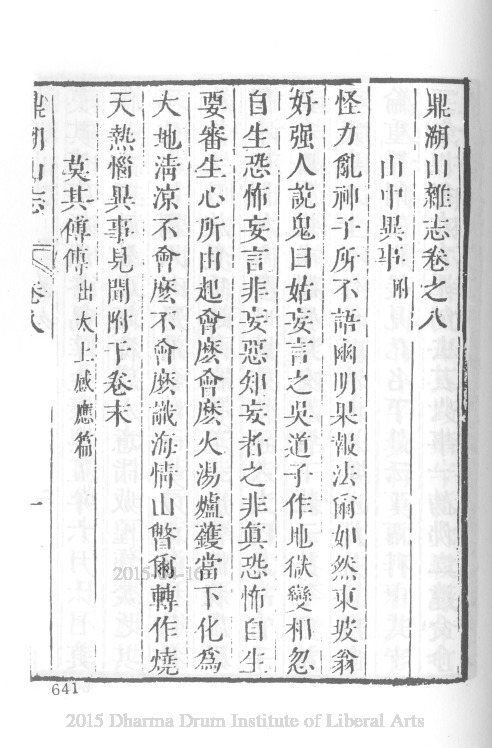 鼎湖山雜志卷之八
山中異事附
怪力亂神子所不語幽明果報法爾如然東坡翁
好强人說鬼曰姑妄言之吳道子作地獄變相忽
自生恐怖妄言非妄惡知妄者之非眞恐怖自生
要審生心所由起會麽會麽火湯爐鑊當下化爲
大地清凉不會麽不會麽識海情山瞥爾轉作燒
天熱惱異事見聞附于卷末
莫其傅傳出太上感應篇
鼎湖山志 卷八 一
641
2015 Dharma Drum Institute of Liberal Arts